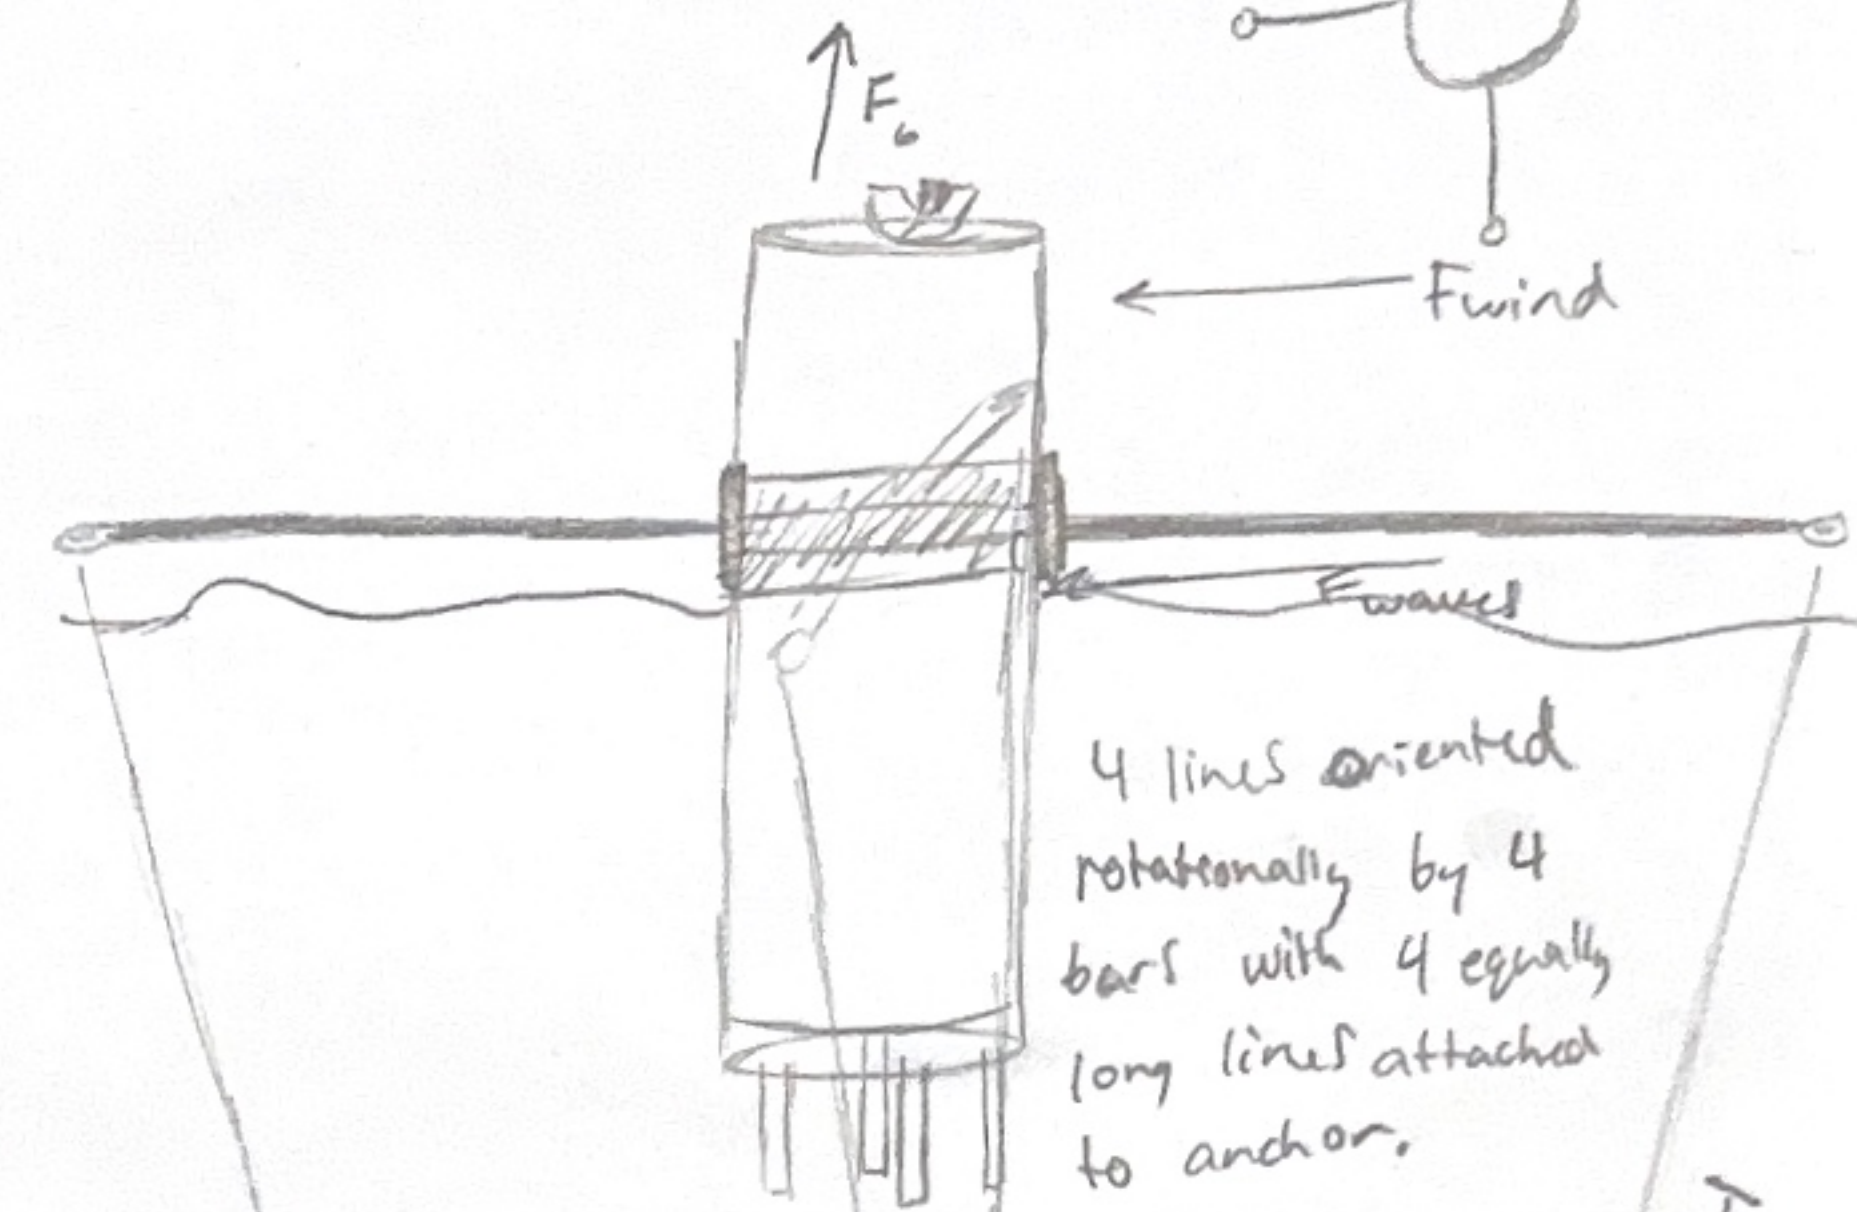 F_b
Fwind
Fwaves
4 lines oriented
rotationally by 4
bars with 4 equally
long lines attached
to anchor.